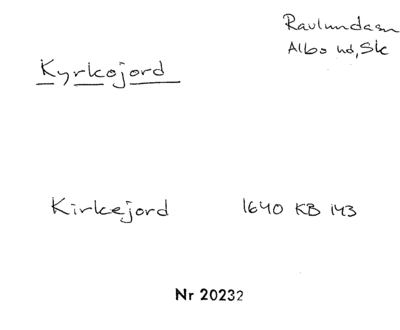 Ravlundasn
Albo hd, Sk
Kyrkojord
Kirkejord 1640 KB 143
Nr 20232